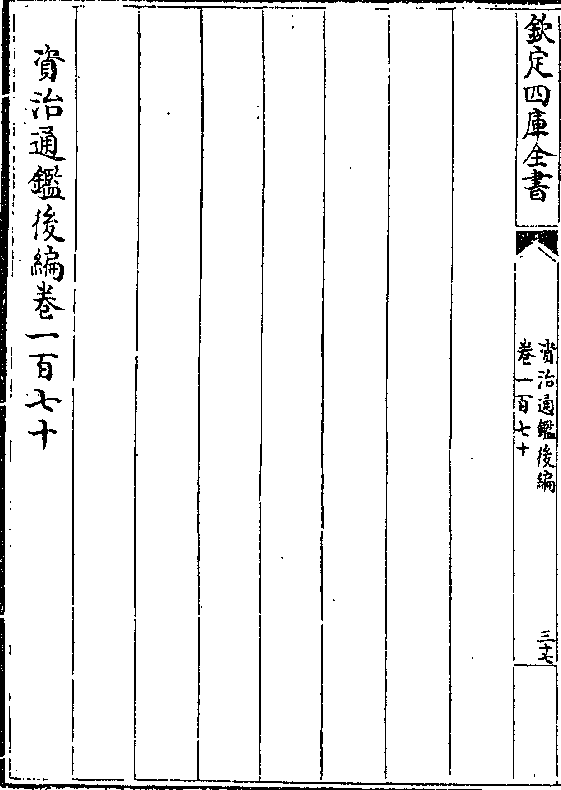 欽定四庫全書
資治通鑑後編
卷一百七十
三十七
資治通鑑後編卷一百七十